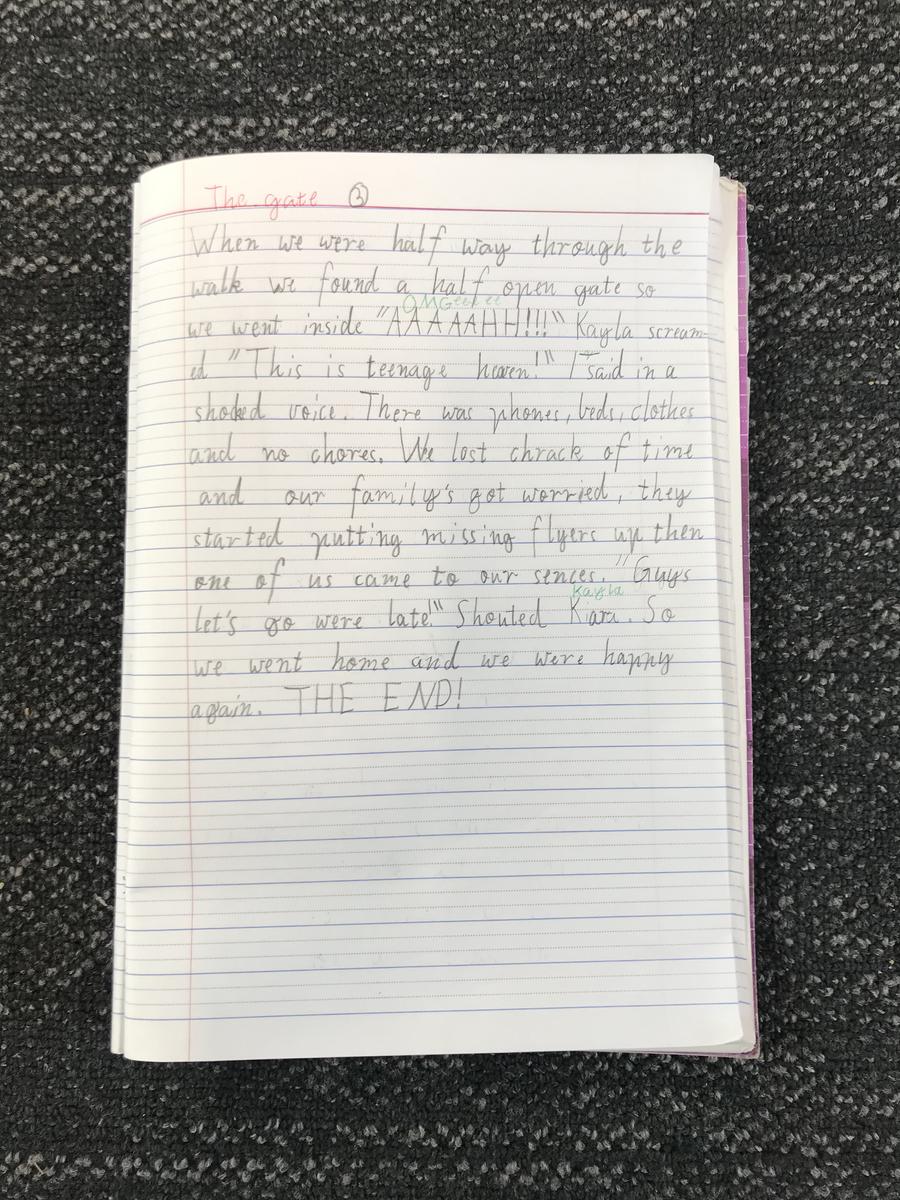 The gate ③
When we were half way through the
walk we found a half open gate so
OMGeekee
we went inside "AAAAAHH!!!" Kayla scream-
ed "This is teenage heaven!" I said in a
shocked voice. There was phones, beds, clothes
and no chores. We lost chrack of time
and our family's got worried, they
started putting missing flyers up then
one of us came to our sences. "Guys
Kayla
let's go were late!" Shouted Kara. So
we went home and we were happy
again. THE END!